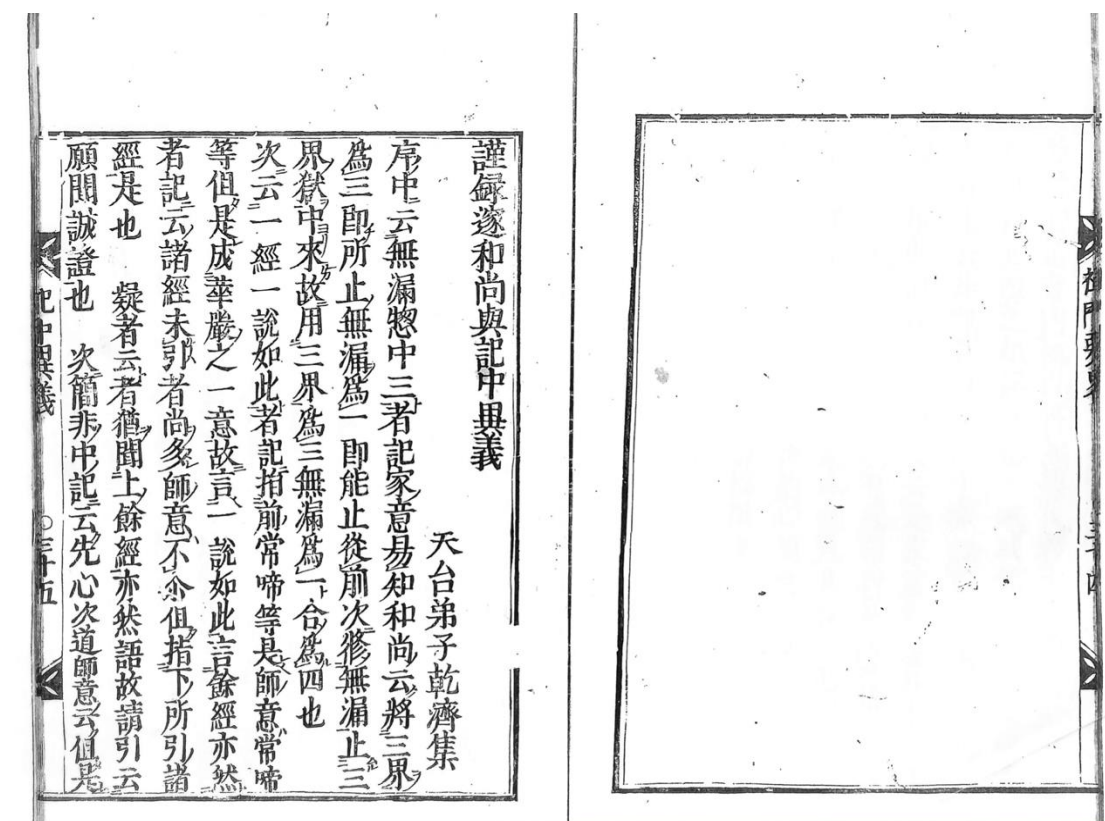 謹録邃和尚與記中異義
天台弟子乾濟集
序中云無漏惣中三者記家意易知和尚云將三界
爲三即所止無漏爲一即能止從前次修無漏止三
界獄中來故用三界爲三無漏爲一合爲四也
次云一經一說如此者記指前常啼等是師意常啼
等但是成華嚴之一意故言一說如此言餘經亦然
者記云諸經未引者尚多師意不尒但指下所引諸
經是也　疑者云者猶聞上餘經亦然語故請引云
願聞誠證也　次簡非中記云先心次道師意云但是
記中異義